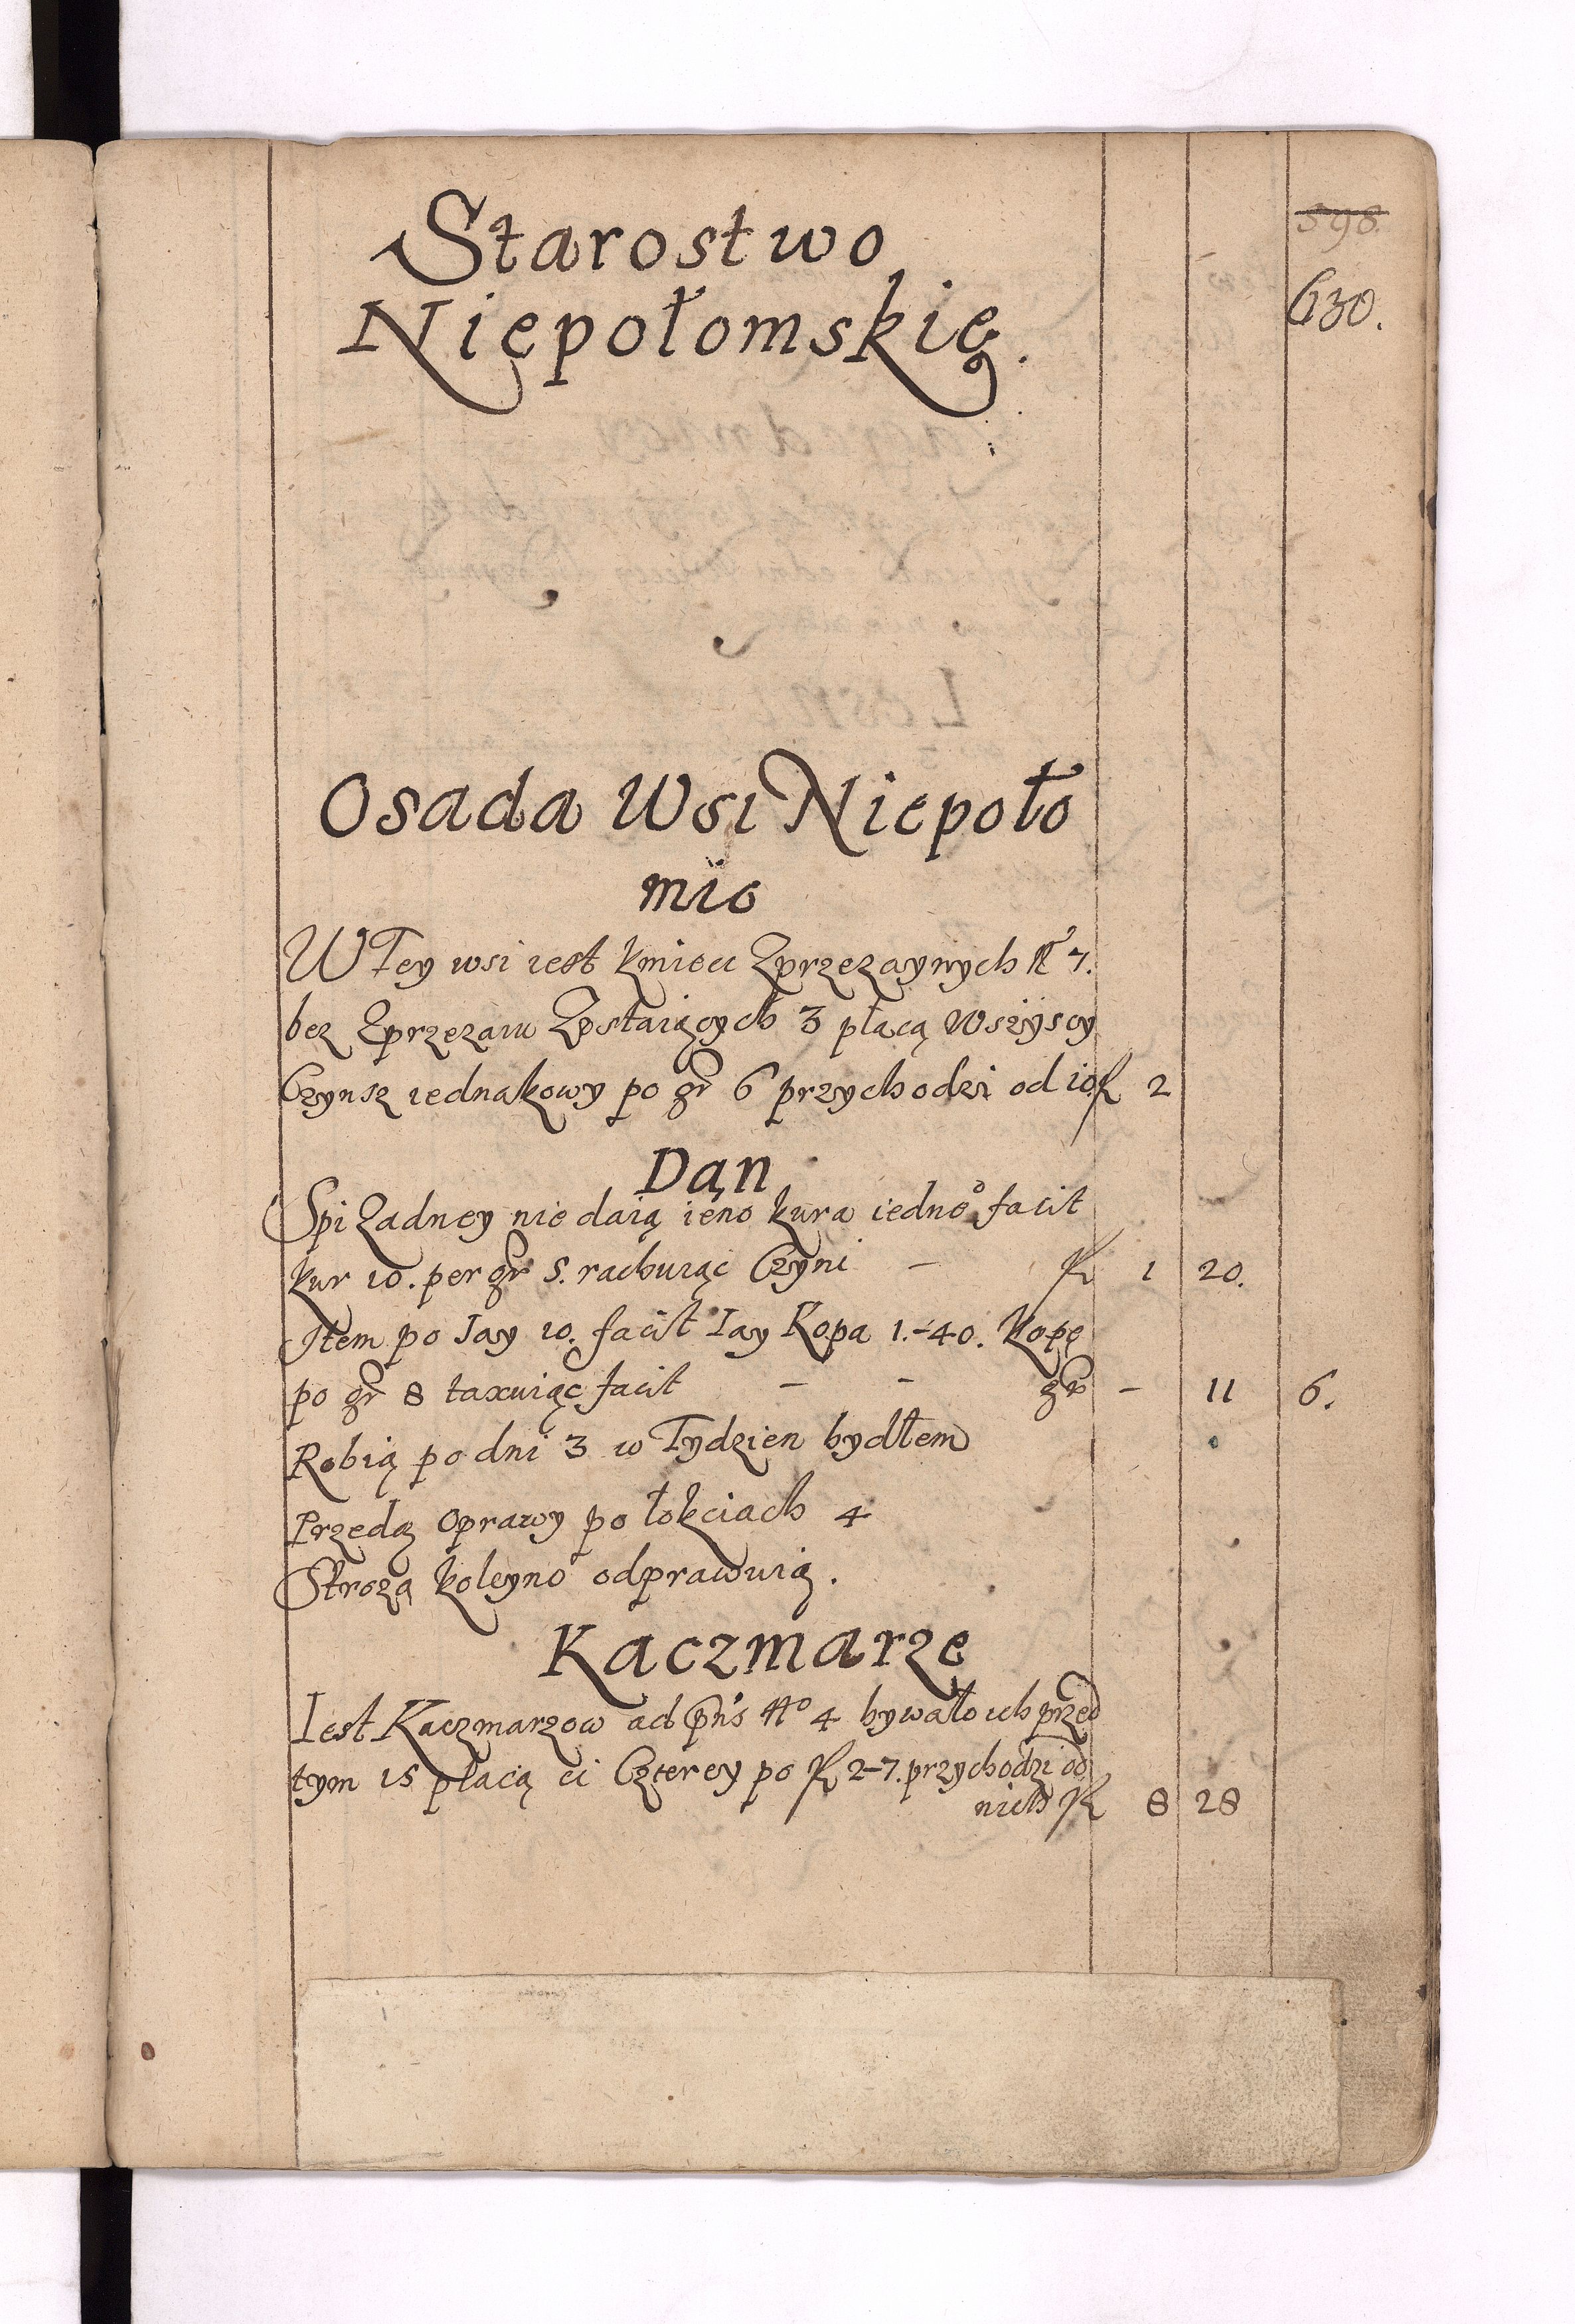 598.
630.
Starostwo
Niepołomskię.
Osada Wsi Niepoło
mic
W Tey wsi iest kmieci Zprzezaynych No 7.
bez Zprzezaiu Zostaiących 3 płacą Wszyscy
Czynsz iednakowy po gr 6 przychodzi od 10 fl 2
Dan
Spizadney nie daią ieno kura iedne facit
kur 10. per gr 5. rachuiąc Czyni - fl 1 20.
Item po Jay 10. facit Iay Kopa 1.-40. kopę
po gr 8 taxuiąc facit - - gr - 11 6.
Robią po dni 3 w Tydzien bydłem
Przedą Oprawy po łokciach 4
Strozą koleyno odprawuią.
Kaczmarze
Iest Kaczmarzow ad pns No 4 bywało ich przed
tym 15 płacą ci Czterey po fl 2-7. przychodzi od
nich fl 8 28